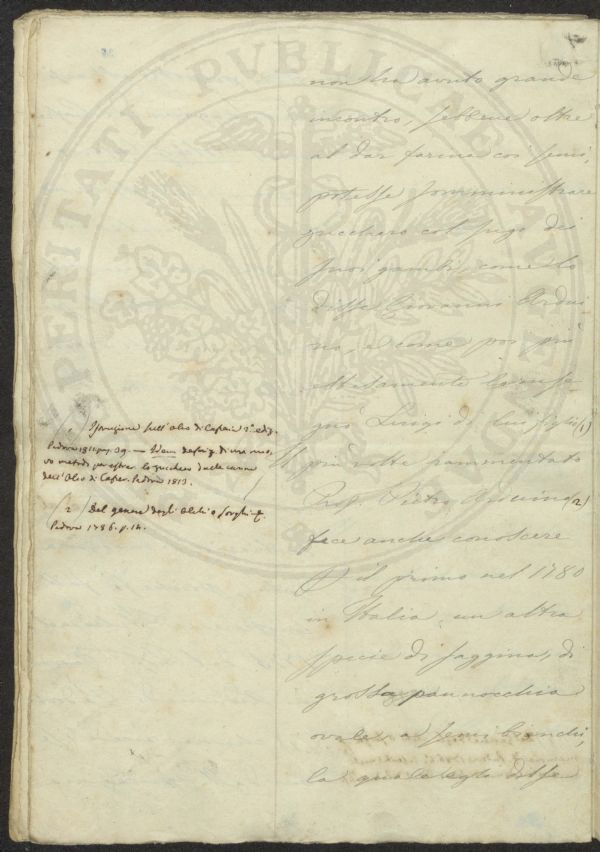 non ha avuto grande
incontro, sebbene oltre
al dar farina coi semi,
potesse somministrare
zucchero col sugo dei
suoi gambi, come lo
disse Giovanni Ardui
no, e come poi più
estesamente
gnò Luigi di lui figlio (1)
più volte rammentato
Prof. Pietro Arduino (2)
fece anche conoscere
il primo nel 1780
in Italia, un altra
specie di saggina, di
grossa pannocchia
ovale, e semi bianchi,
la quale egli disse
1 Istruzione sull'olco di Cafreria 2ª ediz.
Padova 1811 pag. 39. — Idem descriz. di un nuo,
vo metodo per estrar lo zucchero dalle canne
dell'Olco di Cafre. Padova 1813.
2 Del genere degli Olchi o Sorghi
Padova 1786. p. 14.
PROSPERITATI PUBLICAE AUGENDAE